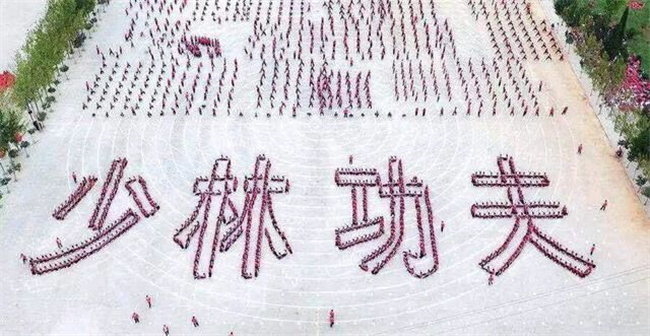 少林功夫